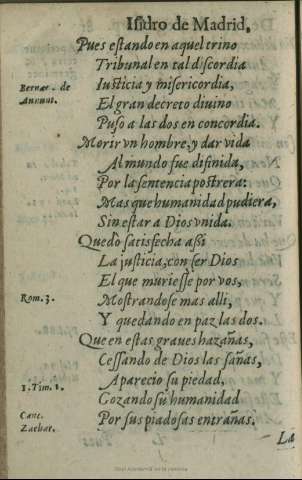 Isidro de Madrid,
Pues estando en aquel trino
Tribunal en tal discordia
Bernar. de Iusticia y misericordia,
Annunt. El gran decreto diuino
Puso a las dos en concordia.
Morir vn hombre, y dar vida
Al mundo fue difinida,
Por la sentencia postrera:
Mas que humanidad pudiera,
Sin estar a Dios vnida.
Quedò satisfecha assi
La justicia, con ser Dios
El que muriesse por vos,
Rom. 3. Mostrandose mas alli,
Y quedando en paz las dos.
Que en estas graues hazañas,
Cessando de Dios las sañas,
1. Tim. 1. Aparecio su piedad,
Cant. Gozando su humanidad
Zachar. Por sus piadosas entrañas.
La